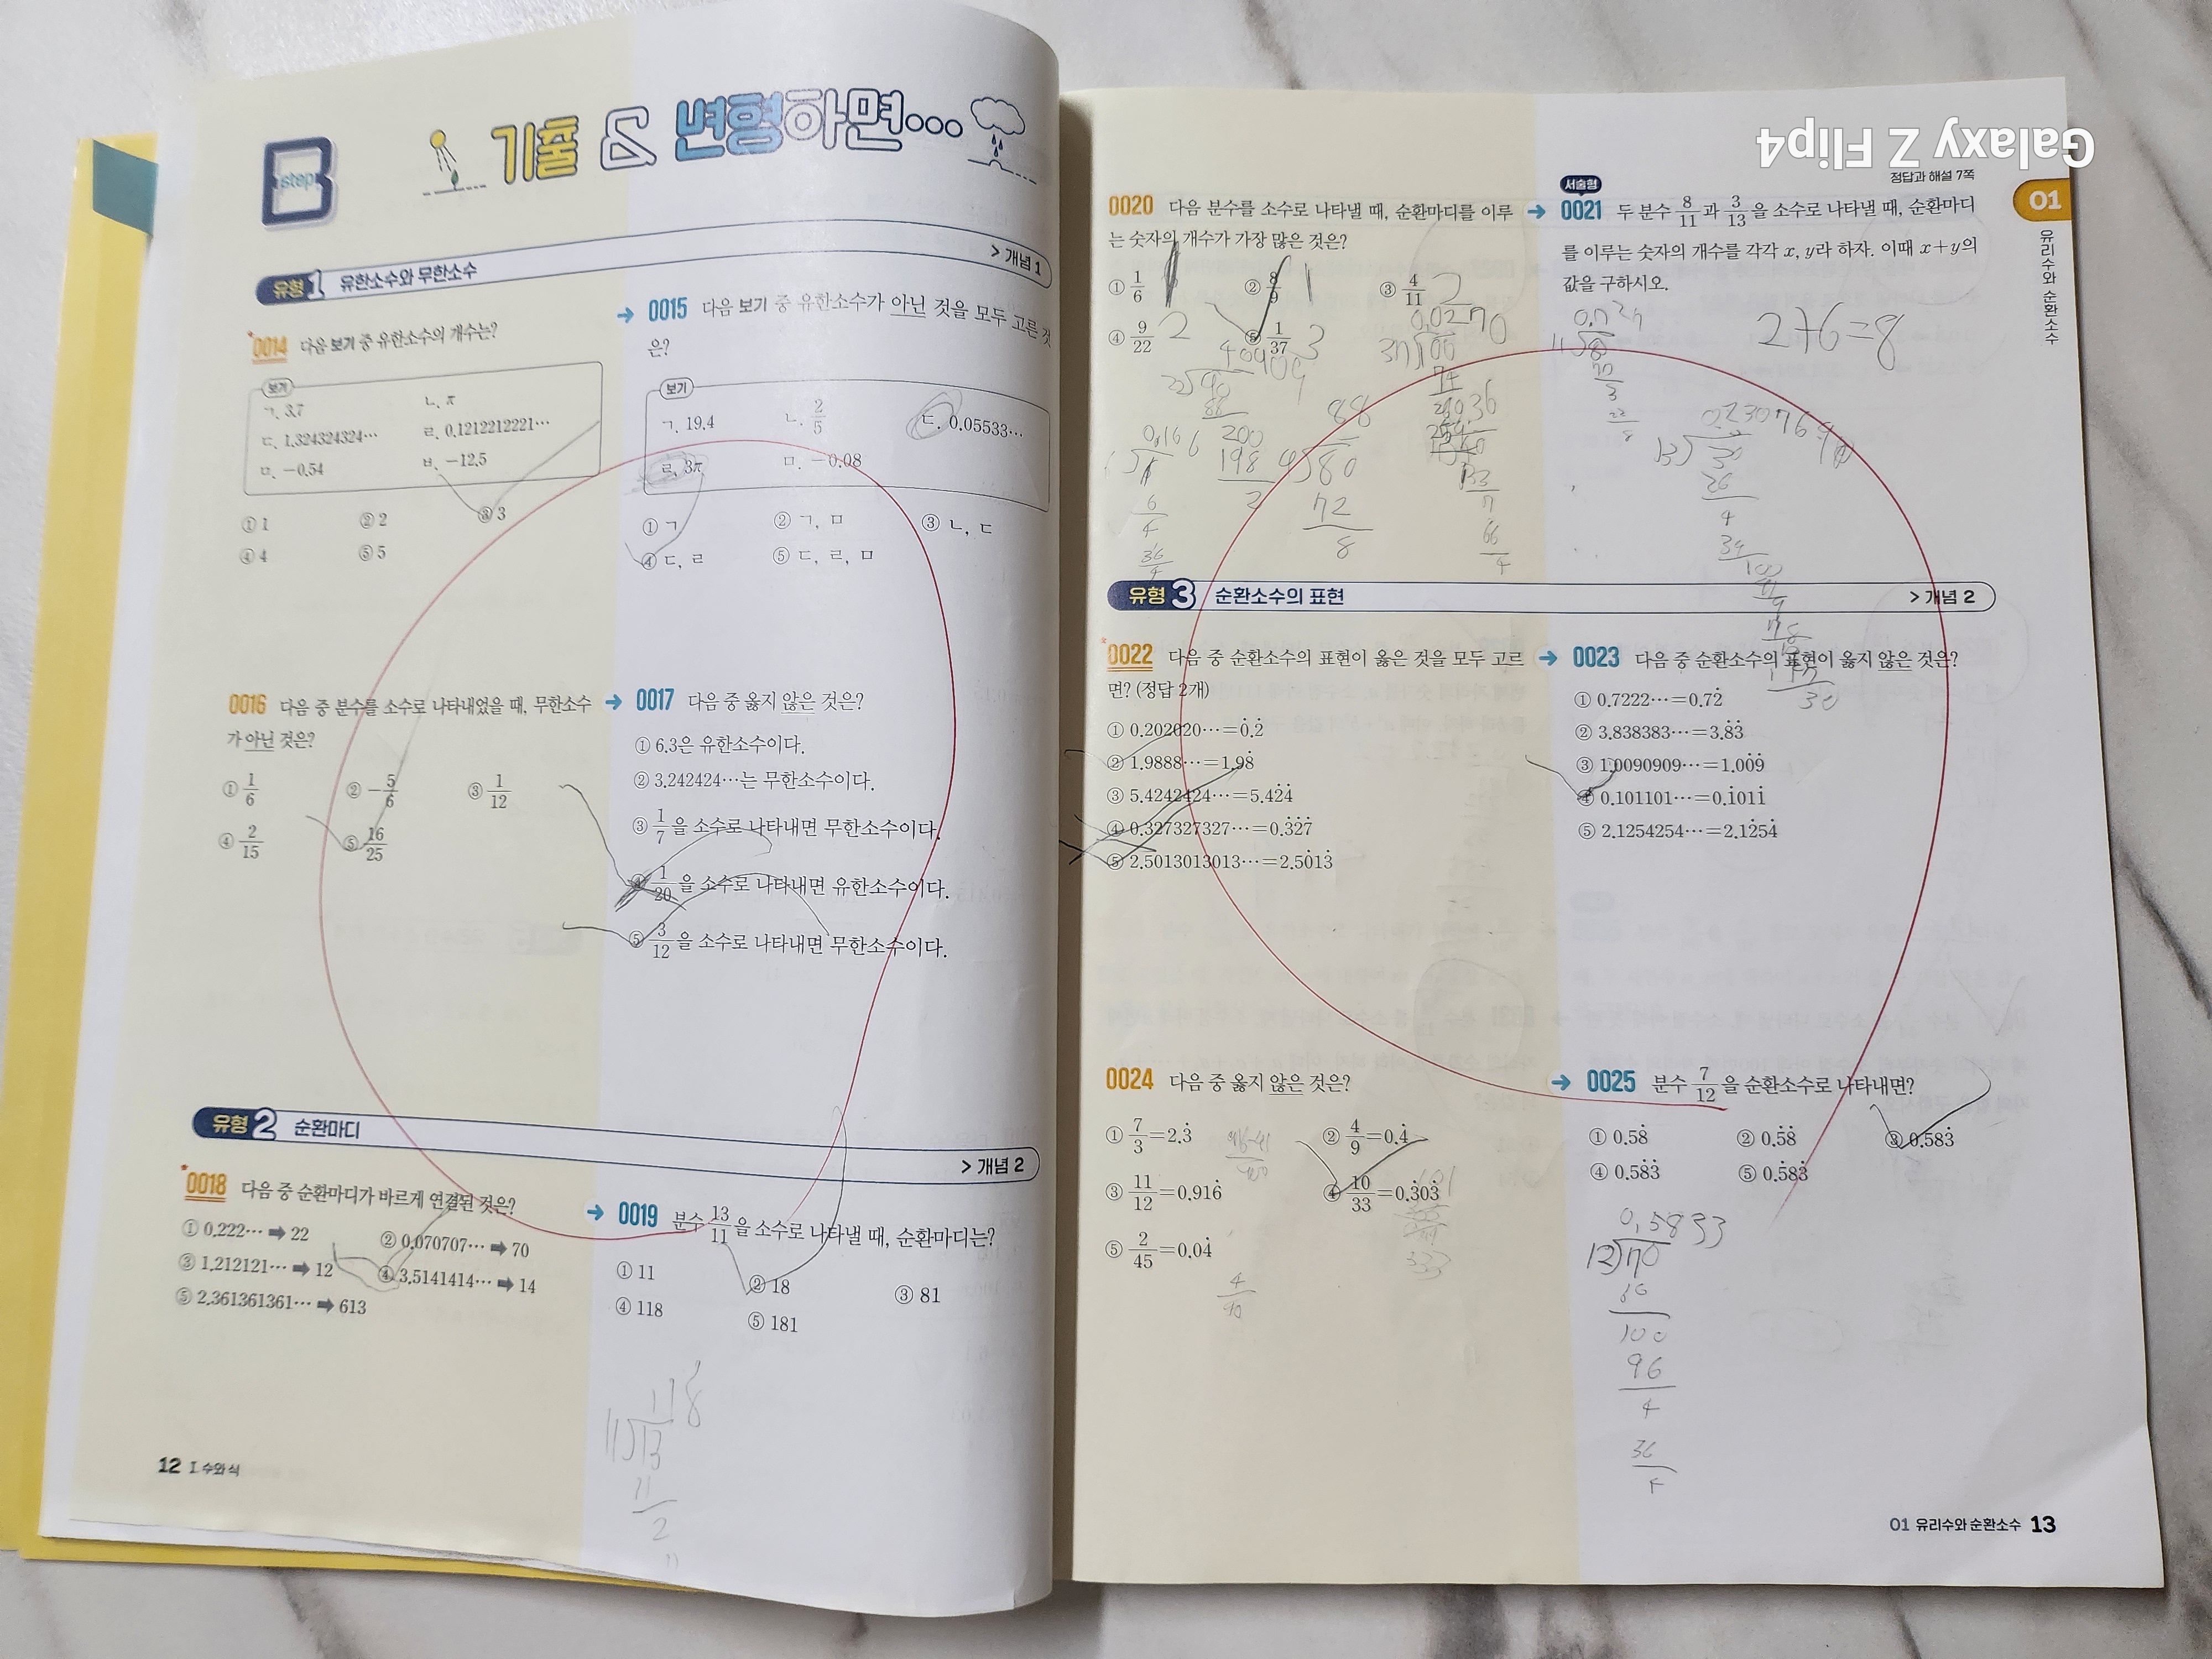 B step 기출 & 변형하면...
유형 1 유한소수와 무한소수 > 개념 1
0014 다음 보기 중 유한소수의 개수는?
보기
ㄱ. 3.7 ㄴ. π
ㄷ. 1.324324324… ㄹ. 0.1212212221…
ㅁ. -0.54 ㅂ. -12.5
① 1 ② 2 ③ 3
④ 4 ⑤ 5
→ 0015 다음 보기 중 유한소수가 아닌 것을 모두 고른 것
은?
보기
ㄱ. 19.4 ㄴ. 2/5 ㄷ. 0.05533…
ㄹ. 3π ㅁ. -0.08
① ㄱ ② ㄱ, ㅁ ③ ㄴ, ㄷ
④ ㄷ, ㄹ ⑤ ㄷ, ㄹ, ㅁ
0016 다음 중 분수를 소수로 나타내었을 때, 무한소수
가 아닌 것은?
① 1/6 ② -5/6 ③ 1/12
④ 2/15 ⑤ 16/25
→ 0017 다음 중 옳지 않은 것은?
① 6.3은 유한소수이다.
② 3.242424…는 무한소수이다.
③ 1/7을 소수로 나타내면 무한소수이다.
④ 1/20을 소수로 나타내면 유한소수이다.
⑤ 3/12을 소수로 나타내면 무한소수이다.
유형 2 순환마디 > 개념 2
0018 다음 중 순환마디가 바르게 연결된 것은?
① 0.222… ➡ 22 ② 0.070707… ➡ 70
③ 1.212121… ➡ 12 ④ 3.5141414… ➡ 14
⑤ 2.361361361… ➡ 613
→ 0019 분수 13/11을 소수로 나타낼 때, 순환마디는?
① 11 ② 18 ③ 81
④ 118 ⑤ 181
1 1 8
11)13
11
2
12 I. 수와 식
Galaxy Z Flip4
정답과 해설 7쪽
01 유리수와 순환소수
0020 다음 분수를 소수로 나타낼 때, 순환마디를 이루
는 숫자의 개수가 가장 많은 것은?
① 1/6 ② 8/9 1 ③ 4/11 2
④ 9/22 2 ⑤ 1/37 3
0.166
200
198
2
88
9)80
72
8
→ 서술형
0021 두 분수 8/11과 3/13을 소수로 나타낼 때, 순환마디
를 이루는 숫자의 개수를 각각 x, y라 하자. 이때 x+y의
값을 구하시오.
2+6=8
유형 3 순환소수의 표현 > 개념 2
0022 다음 중 순환소수의 표현이 옳은 것을 모두 고르
면? (정답 2개)
① 0.202020…=0̇.2̇
② 1.9888…=1.98̇
③ 5.4242424…=5.42̇4̇
④ 0.327327327…=0.3̇2̇7̇
⑤ 2.5013013013…=2.50̇13̇
→ 0023 다음 중 순환소수의 표현이 옳지 않은 것은?
① 0.7222…=0.72̇
② 3.838383…=3.8̇3̇
③ 1.0090909…=1.00̇9̇
④ 0.101101…=0.1̇011̇
⑤ 2.1254254…=2.12̇54̇
0024 다음 중 옳지 않은 것은?
① 7/3=2.3̇ ② 4/9=0.4̇
③ 11/12=0.916̇ ④ 10/33=0.3̇03̇
⑤ 2/45=0.04̇
→ 0025 분수 7/12을 순환소수로 나타내면?
① 0.58̇ ② 0.5̇8̇ ③ 0.583̇
④ 0.58̇3̇ ⑤ 0.5̇83̇
0.5833
12)70
60
100
96
4
36
4
01 유리수와 순환소수 13